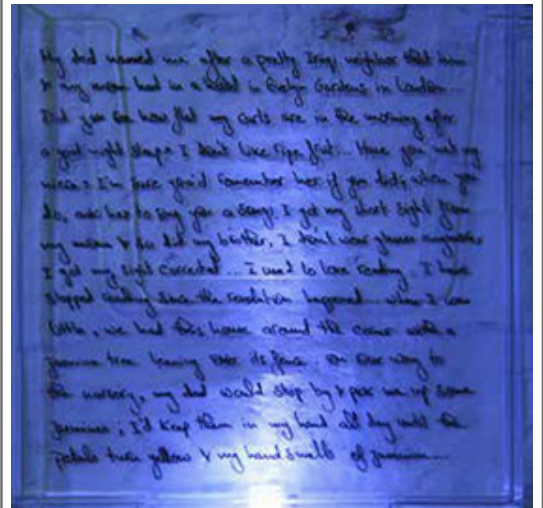 My dad named me after a pretty Iraqi neighbor that him
& my mom had in a hotel in Evelyn Gardens in London...
Did you see how flat my curls are in the morning after
a good night sleep? I don't like ripe fruit... Have you met my
niece? I'm sure you'd remember her if you did; when you
do, ask her to sing you a song. I got my short sight from
my mom & so did my brother, I don't wear glasses anymore
I got my sight corrected... I used to love reading. I have
stopped reading since the revolution happened... when I was
little, we had this house around the corner with a
jasmine tree leaning over its fence. on our way to
the nursery, my dad would stop by & pick me up some
jasmines; I'd keep them in my hand all day until the
petals turn yellow & my hand smells of jasmine...